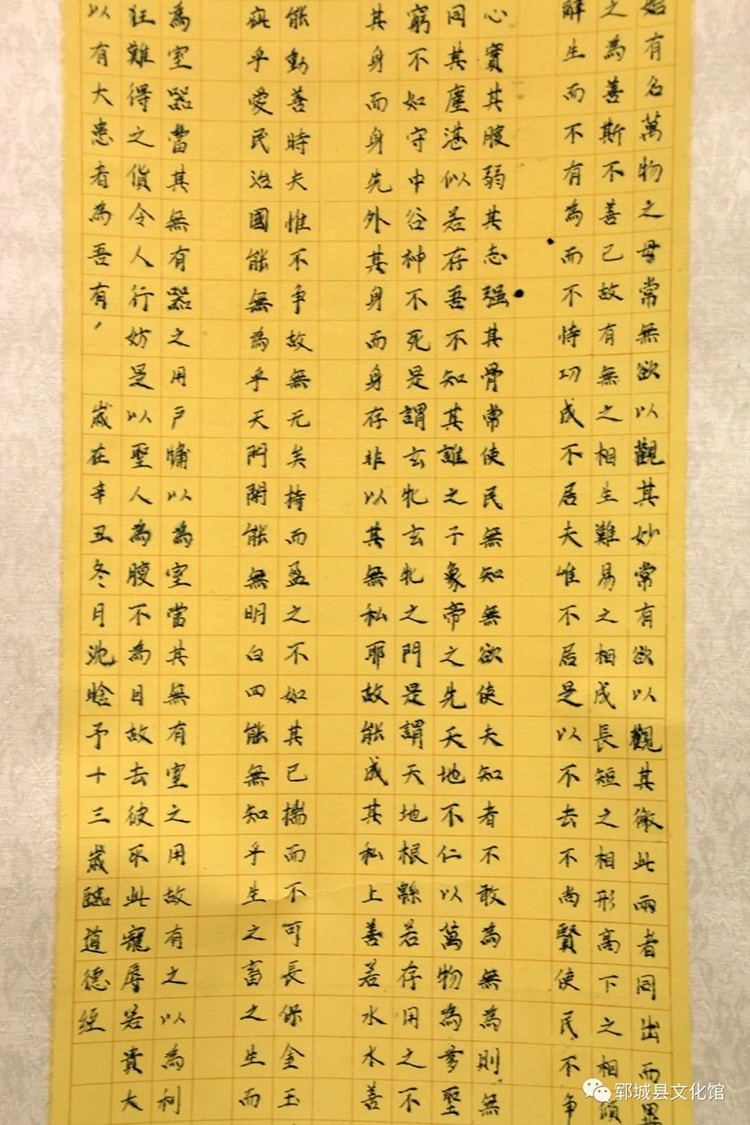 始有名萬物之母常無欲以觀其妙常有欲以觀其徼此兩者同出而異
之為善斯不善已故有無之相生難易之相成長短之相形高下之相傾
辭生而不有為而不恃功成不居夫惟不居是以不去不尚賢使民不爭
心實其腹弱其志强其骨常使民無知無欲使夫知者不敢為無為則無
同其塵湛似若存吾不知其誰之子象帝之先天地不仁以萬物為芻聖
窮不如守中谷神不死是謂玄牝玄牝之門是謂天地根緜若存用之不
其身而身先外其身而身存非以其無私耶故能成其私上善若水水善
能動善時夫惟不争故無尤矣持而盈之不如其已揣而不可長保金玉
疵乎愛民治國能無為乎天門開能無明白四能無知乎生之畜之生而
為室器當其無有器之用戶牖以為室當其無有室之用故有之以為利
狂難得之貨令人行妨是以聖人為腹不為目故去彼取此寵辱若貴大
以有大患者為吾有 歲在辛丑冬月沈晗予十三歲臨道德經
郓城县文化馆